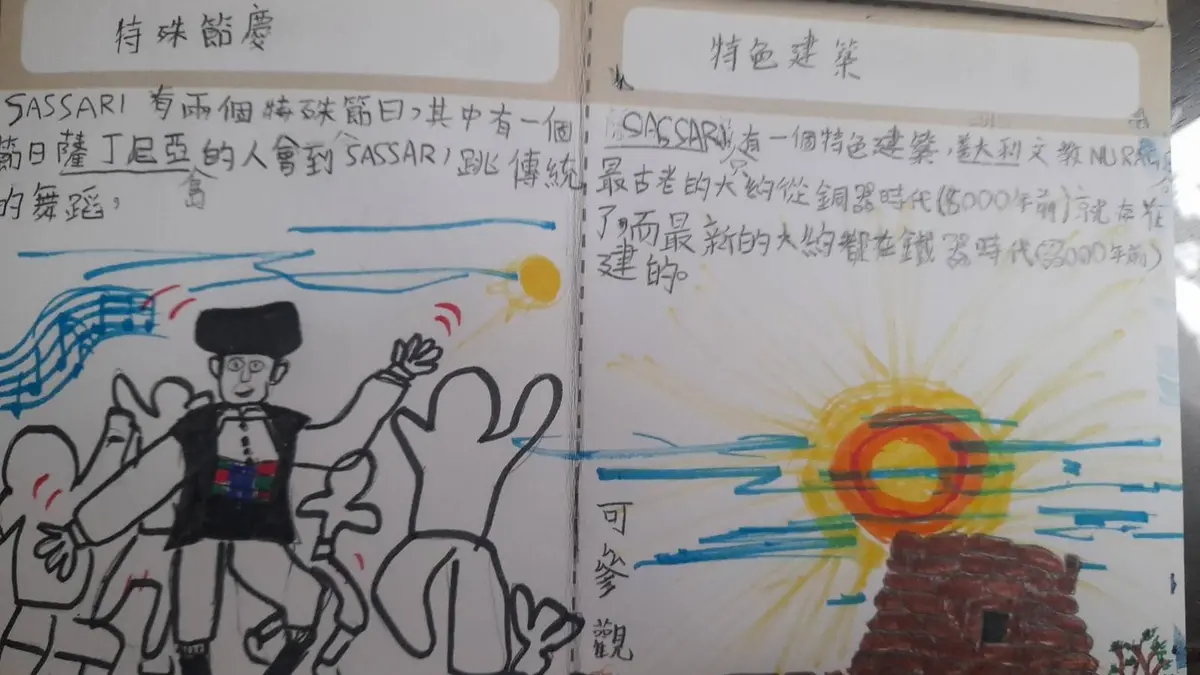 特殊節慶
SASSARI 有兩個特殊節日，其中有一個
節日薩丁尼亞的人會到SASSARI跳傳統
的舞蹈，
特色建築
SASSARI有一個特色建築，義大利文教NURAG
最古老的大約從銅器時代(8000年前)就存在
了，而最新的大約都在鐵器時代(3000年前)
建的。
可參觀